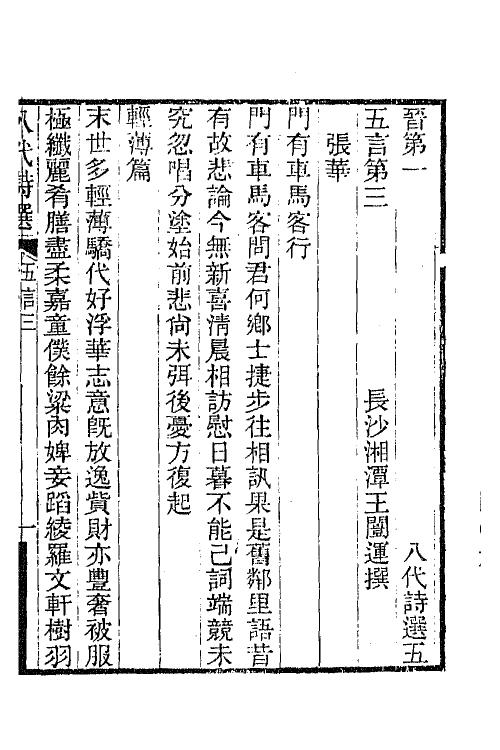 晉第一　八代詩選五
五言第三　長沙湘潭王闓運撰
張華
門有車馬客行
門有車馬客問君何鄉士捷步往相訊果是舊鄰里語昔
有故悲論今無新喜淸晨相訪慰日暮不能已詞端競未
究忽唱分塗始前悲尙未弭後憂方復起
輕薄篇
末世多輕薄驕代好浮華志意旣放逸貲財亦豐奢被服
極纖麗肴膳盡柔嘉童僕餘粱肉婢妾蹈綾羅文軒樹羽
八代詩選　五言三　一